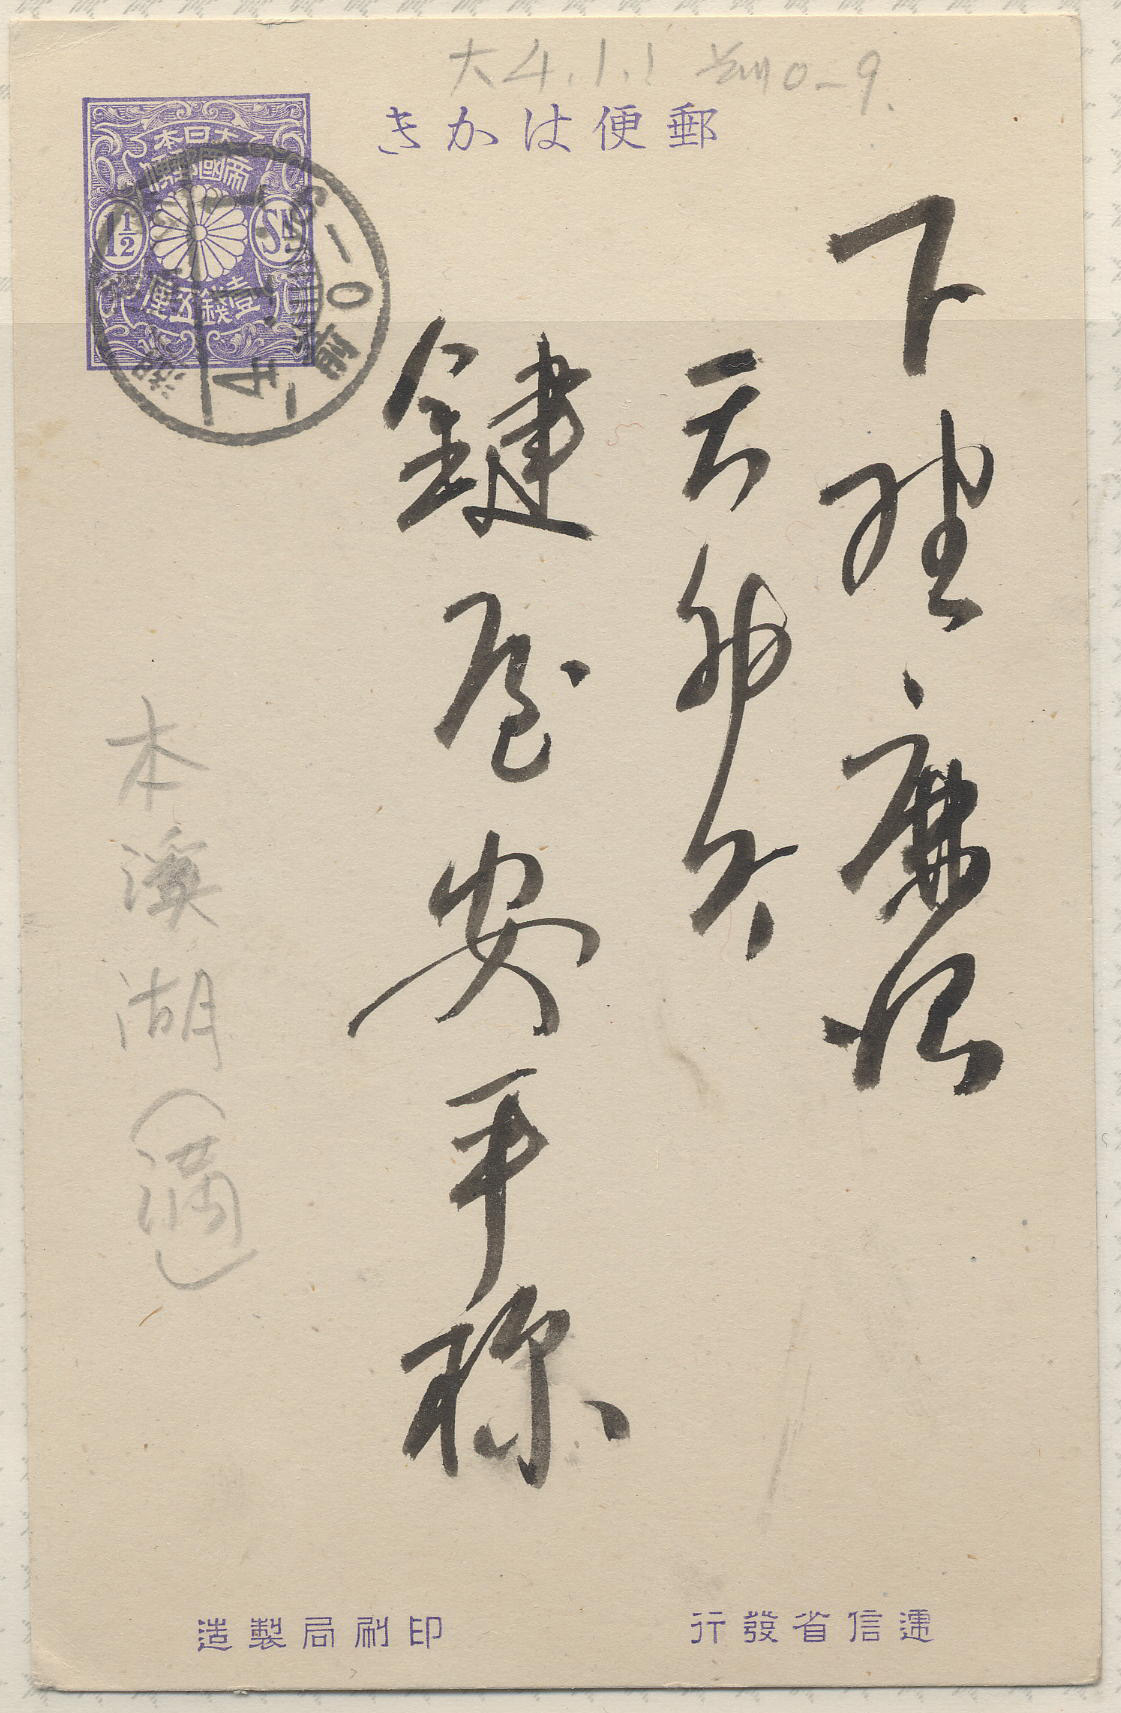 大4.1.1 前0-9.
郵便はかき
大日本
帝國郵便
1½
Sn
壹錢五厘
4
前0-9
下野鹿沼
天神町
鍵屋安平様
本溪湖
(満)
遞信省發行
印刷局製造